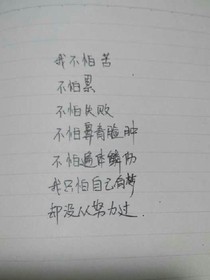 我不怕苦
不怕累
不怕失败
不怕鼻青脸肿
不怕遍体鳞伤
我只怕自己有梦
却没从努力过.